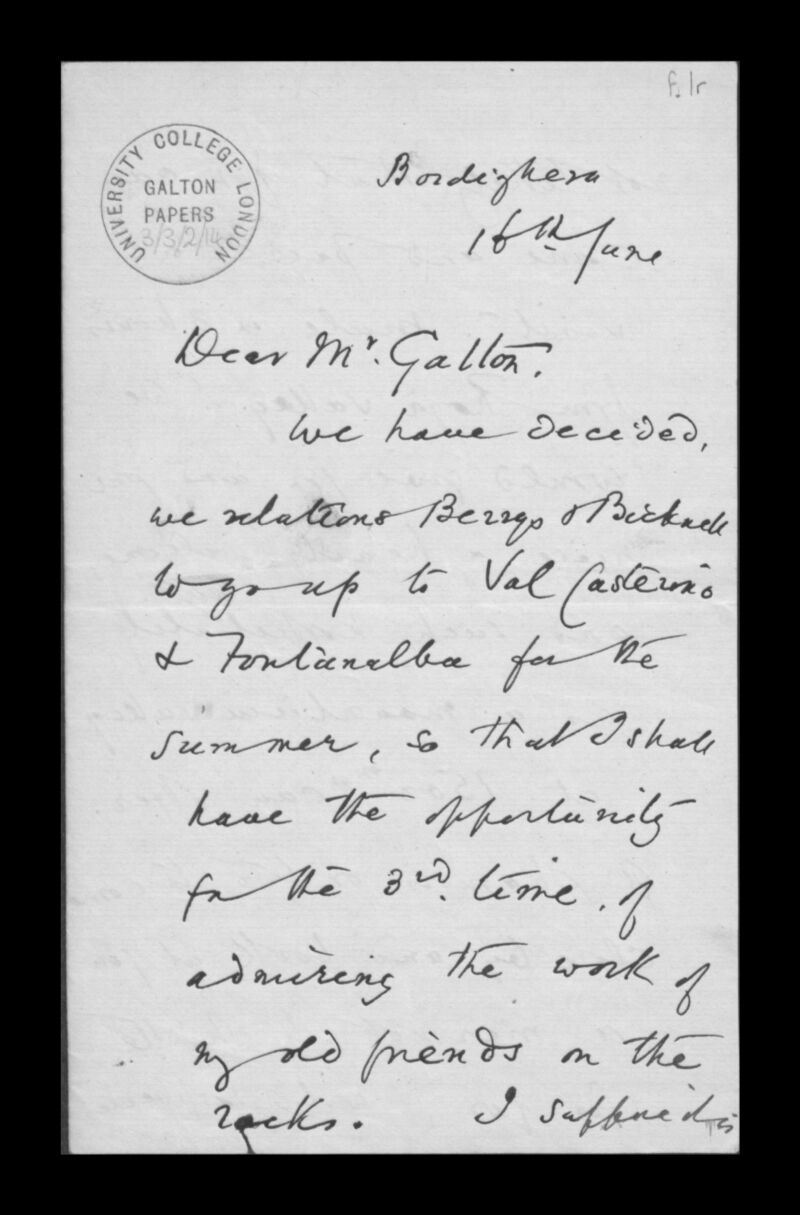 f.1r
UNIVERSITY COLLEGE LONDON
GALTON
PAPERS
3/3/2/14
Bordighera
16th June
Dear Mr. Galton.
We have decided,
we relations Berrys & Bicknell
to go up to Val Casterino
& Fontanalba for the
summer, so that I shall
have the opportunity
for the 3rd. time, of
admiring the work of
my old friends on the
rocks. I suffered